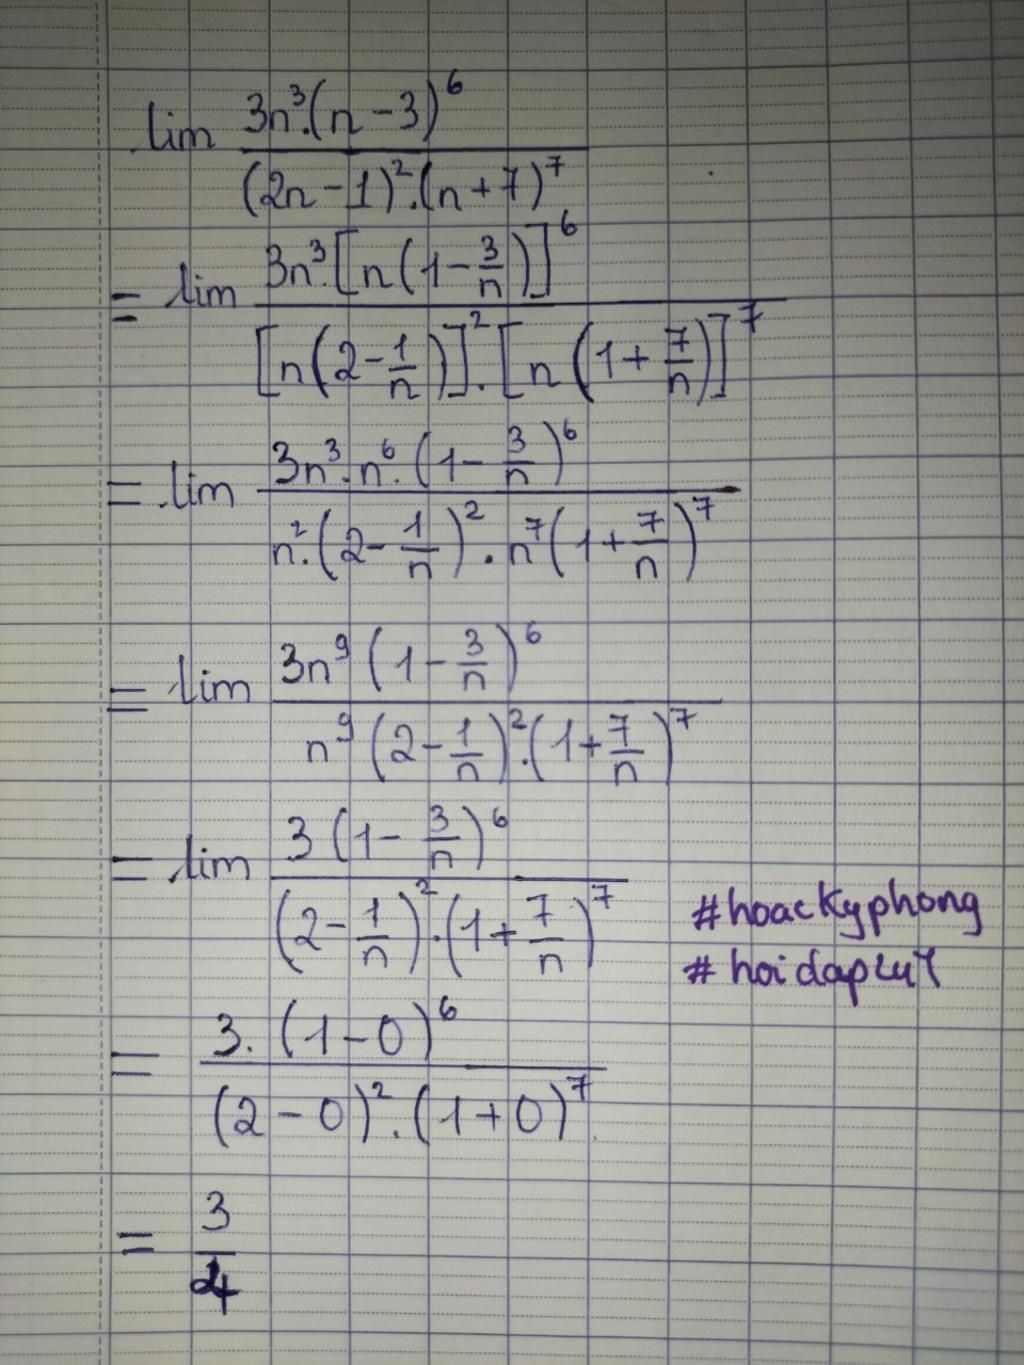 lim 3n³.(n-3)⁶ / (2n-1)².(n+7)⁷
= lim 3n³.[n(1-3/n)]⁶ / [n(2-1/n)]².[n(1+7/n)]⁷
= lim 3n³.n⁶.(1-3/n)⁶ / n².(2-1/n)².n⁷(1+7/n)⁷
= lim 3n⁹(1-3/n)⁶ / n⁹(2-1/n)².(1+7/n)⁷
= lim 3(1-3/n)⁶ / (2-1/n)².(1+7/n)⁷
#hoackyphong
#hoidap247
= 3.(1-0)⁶ / (2-0)².(1+0)⁷
= 3/4